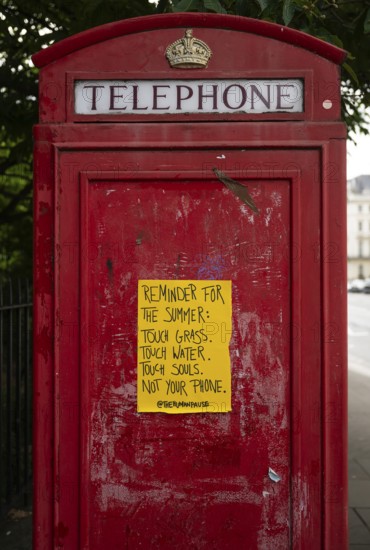 TELEPHONE
REMINDER FOR
THE SUMMER:
TOUCH GRASS.
TOUCH WATER.
TOUCH SOULS.
NOT YOUR PHONE.
@THEHUMANPAUSE